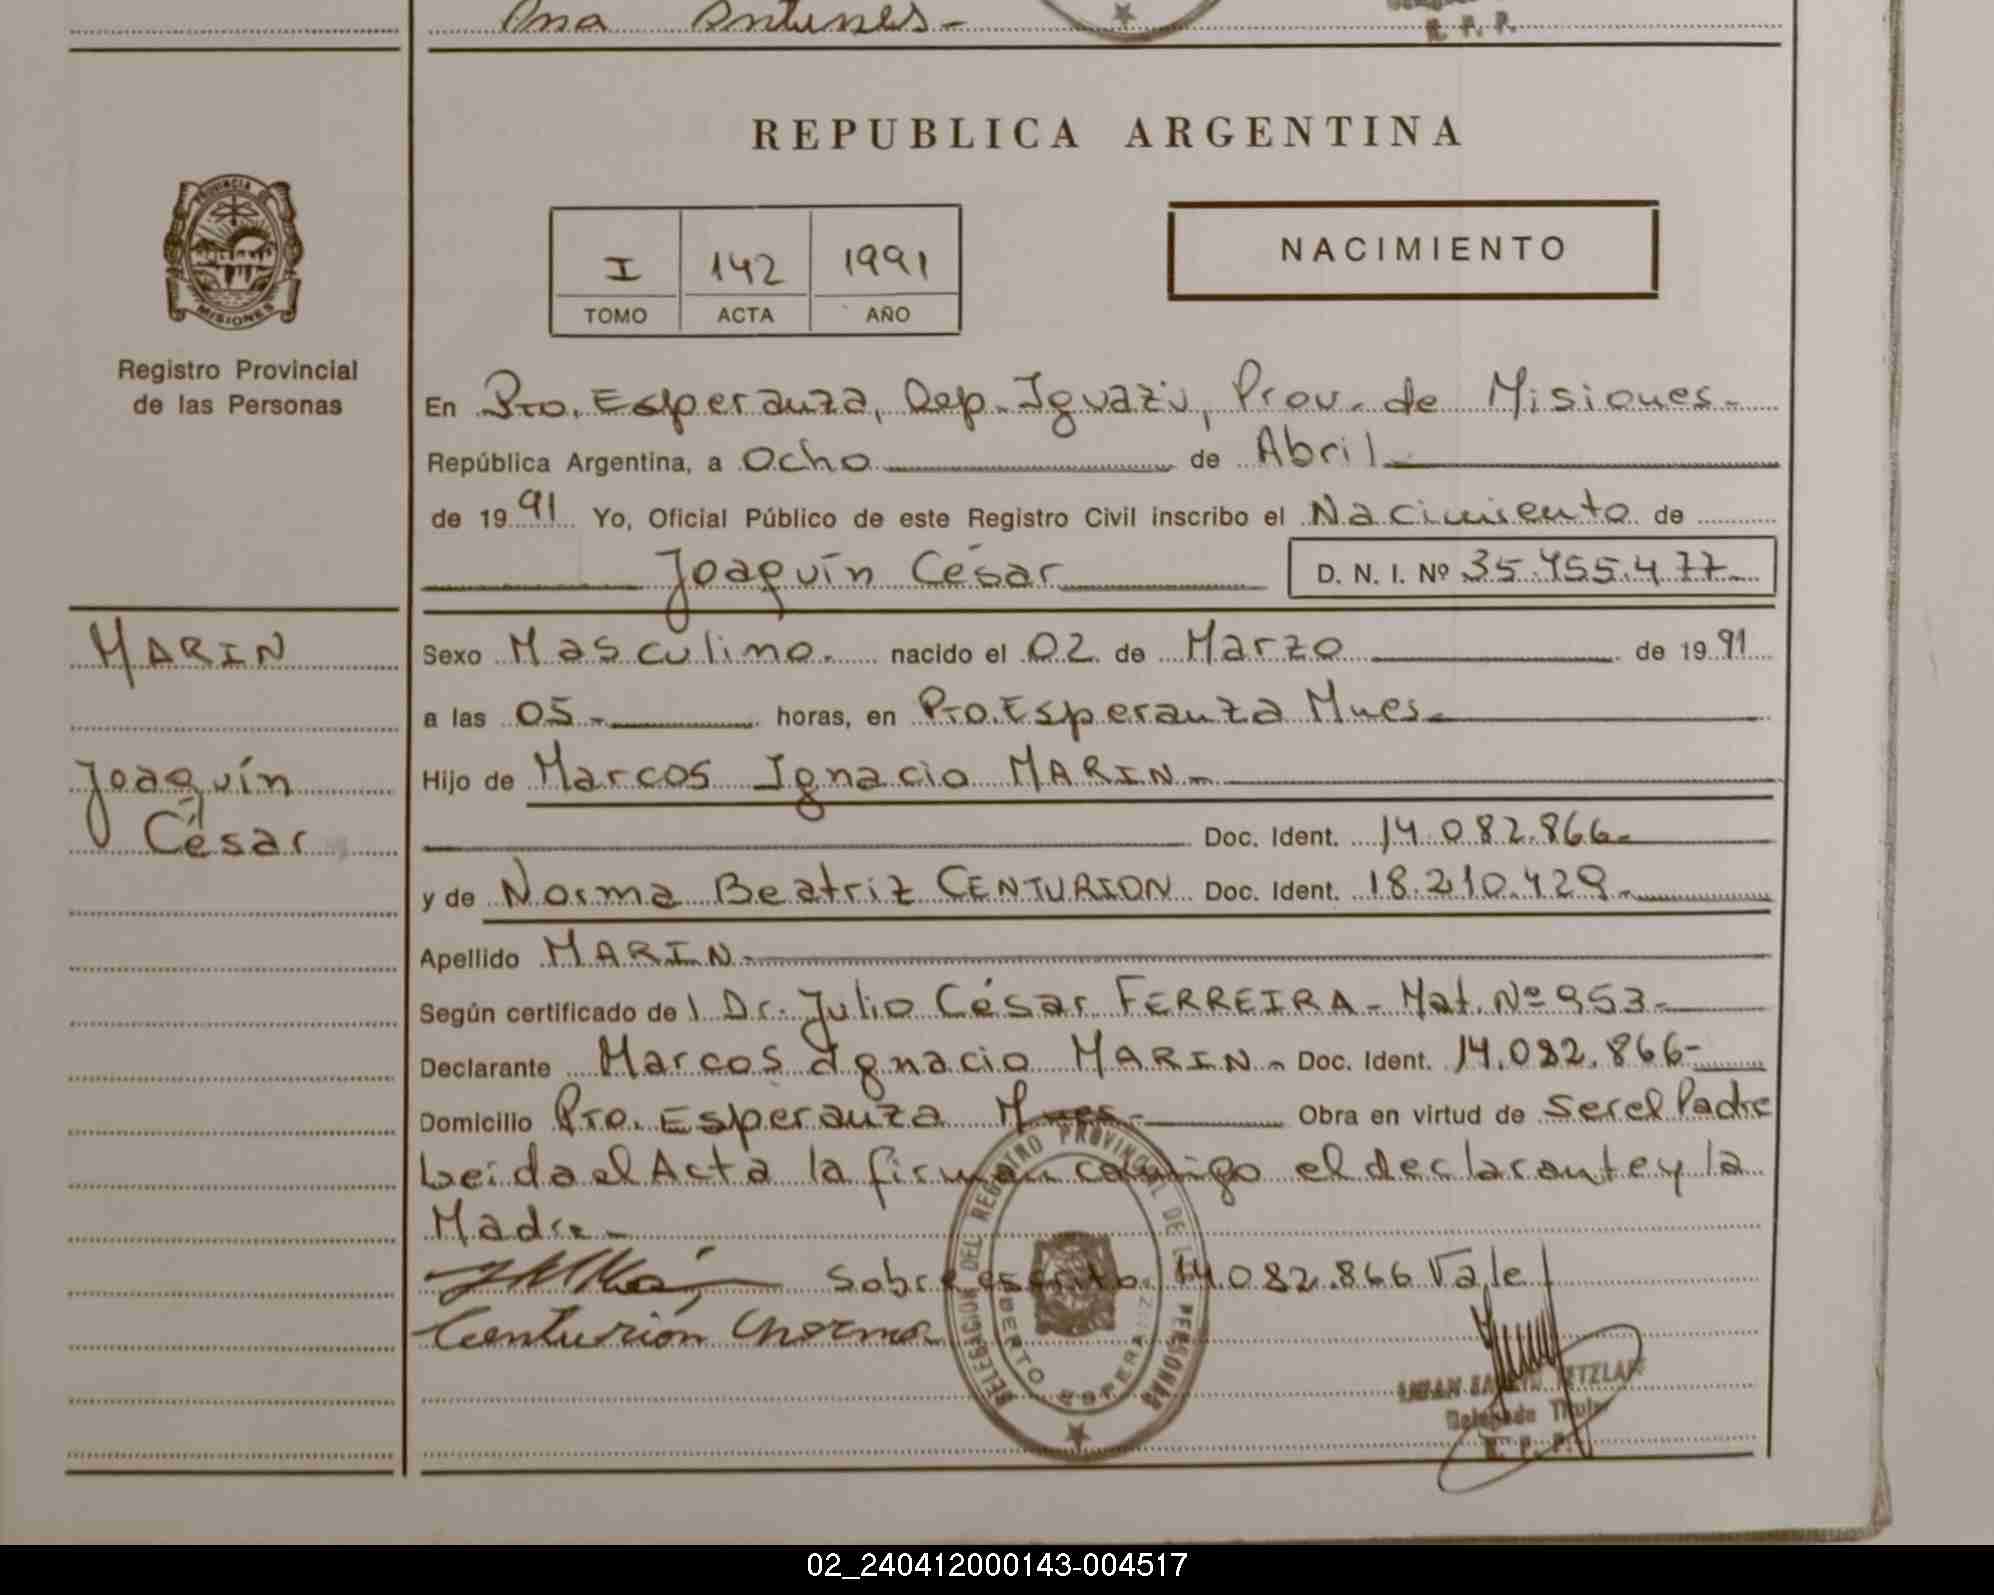 Ana Antunes-
R. P. P.
REPUBLICA ARGENTINA
PROVINCIA DE
MISIONES
I 142 1991
TOMO ACTA AÑO
NACIMIENTO
Registro Provincial
de las Personas
En Pto. Esperanza, Dep. Iguazú, Prov. de Misiones-
República Argentina, a Ocho de Abril
de 1991 Yo, Oficial Público de este Registro Civil inscribo el Nacimiento de
Joaquín César D. N. I. Nº 35.455.477-
MARIN
Joaquín
César
Sexo Masculino. nacido el 02 de Marzo de 1991
a las 05- horas, en Pto. Esperanza Mnes-
Hijo de Marcos Ignacio MARIN-
Doc. Ident. 14.082.866-
y de Norma Beatriz CENTURION Doc. Ident. 18.210.429-
Apellido MARIN-
Según certificado de l Dr. Julio César FERREIRA- Mat. Nº 953-
Declarante Marcos Ignacio MARIN- Doc. Ident. 14.082.866-
Domicilio Pto. Esperanza Mnes- Obra en virtud de ser el Padre
Leída el Acta la firman conmigo el declarante y la
Madre-
Sobre escrito 14.082.866 Vale
Centurión Norma
DELEGACION DEL REGISTRO PROVINCIAL DE LAS PERSONAS
PUERTO ESPERANZA
Delegado Titular
R. P. P.
02_240412000143-004517